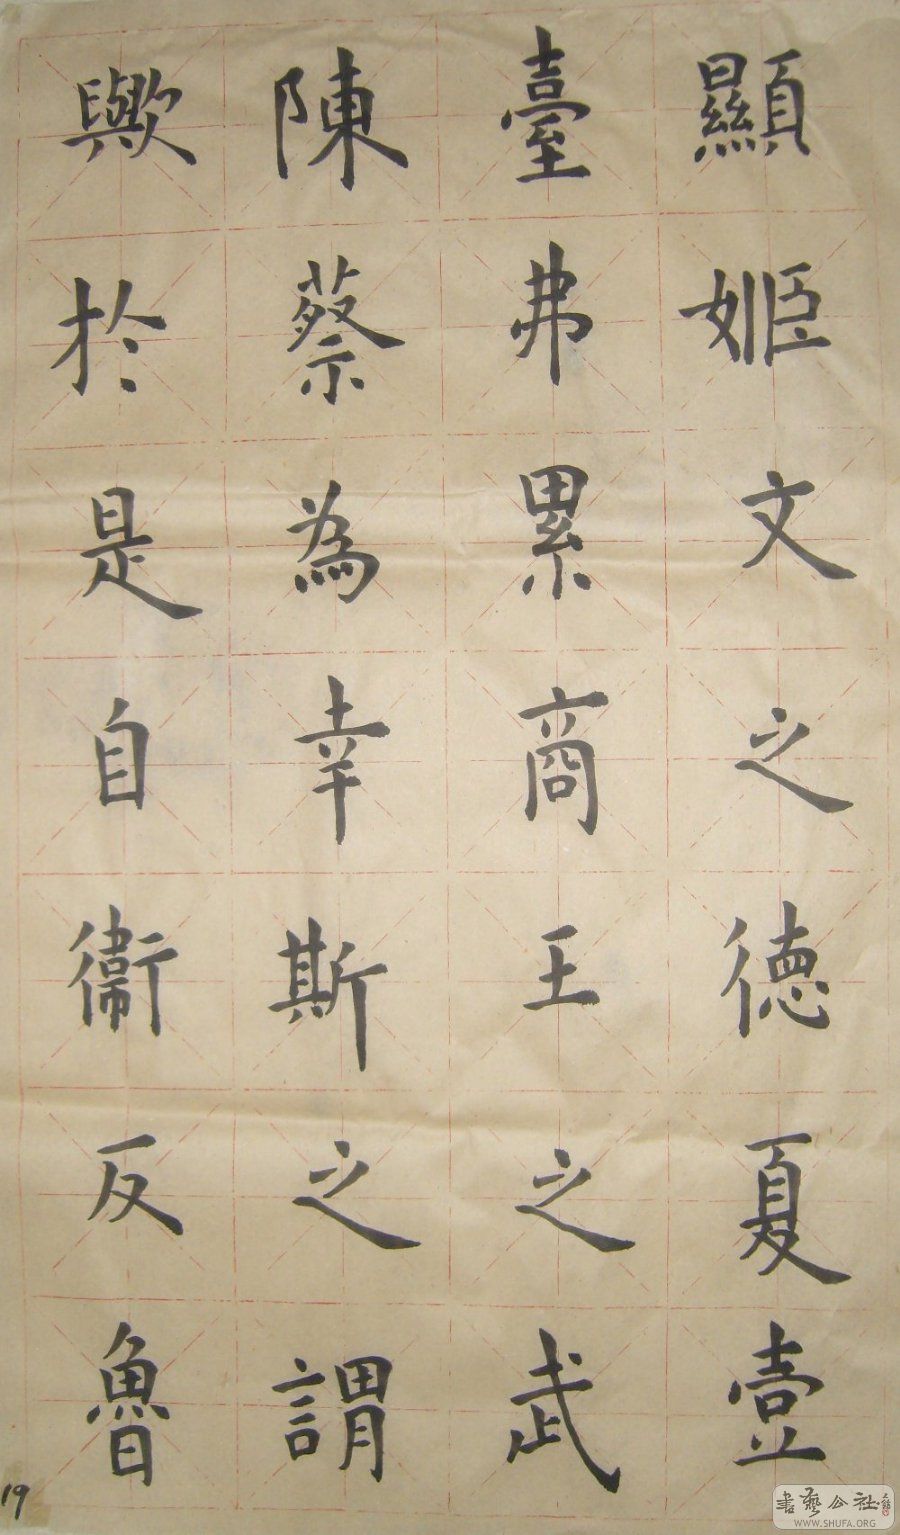 顯姬文之德夏壹
臺弗累商王之武
陳蔡為幸斯之謂
歟於是自衞反魯
19
書藝公社
WWW.SHUFA.ORG